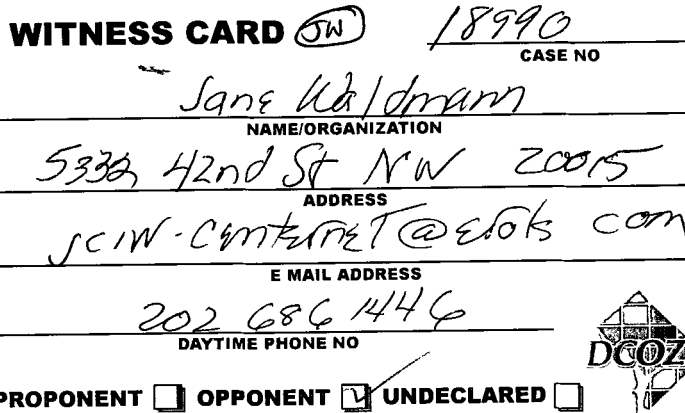 WITNESS CARD JW 18990
CASE NO
Jane Waldmann
NAME/ORGANIZATION
5332 42nd St NW 20015
ADDRESS
com
E MAIL ADDRESS
202 686 1446
DAYTIME PHONE NO
DCOZ
PROPONENT OPPONENT UNDECLARED